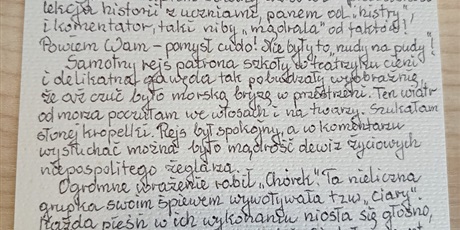 lekcja historii z uczniami, panem od „histry”
i komentator, taki niby „mądrala” od faktów!
Powiem Wam – pomysł cudo! Nie były to „nudy na pudy”!
Samotny rejs patrona szkoły w teatrzyku cieni
i delikatna gawęda tak pobudzały wyobraźnię,
że aż czuć było morską bryzę w przestrzeni. Ten wiatr
od morza poczułam we włosach i na twarzy. Szukałam
słonej kropelki. Rejs był spokojny, a w komentarzu
wysłuchać można było mądrość dewiz życiowych
niepospolitego żeglarza.
Ogromne wrażenie robił „Chórek”. Ta nieliczna
grupka swoim śpiewem wywoływała tzw. „ciary”
Każda pieśń w ich wykonaniu niosła się głośno,